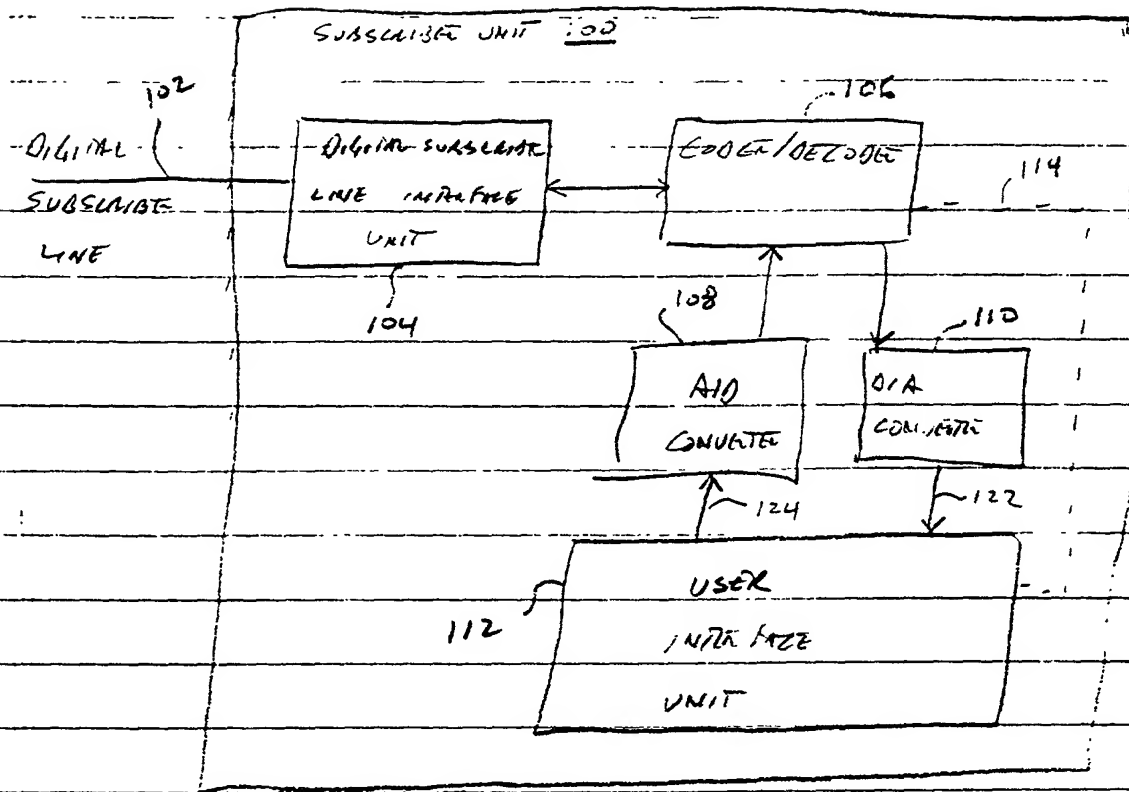 SUBSCRIBER UNIT 100
102
DIGITAL
SUBSCRIBE
LINE
DIGITAL SUBSCRIBE
LINE INTERFACE
UNIT
104
106
CODER/DECODER
114
108
A/D
CONVERTER
110
D/A
CONVERTER
124
122
112
USER
INTERFACE
UNIT